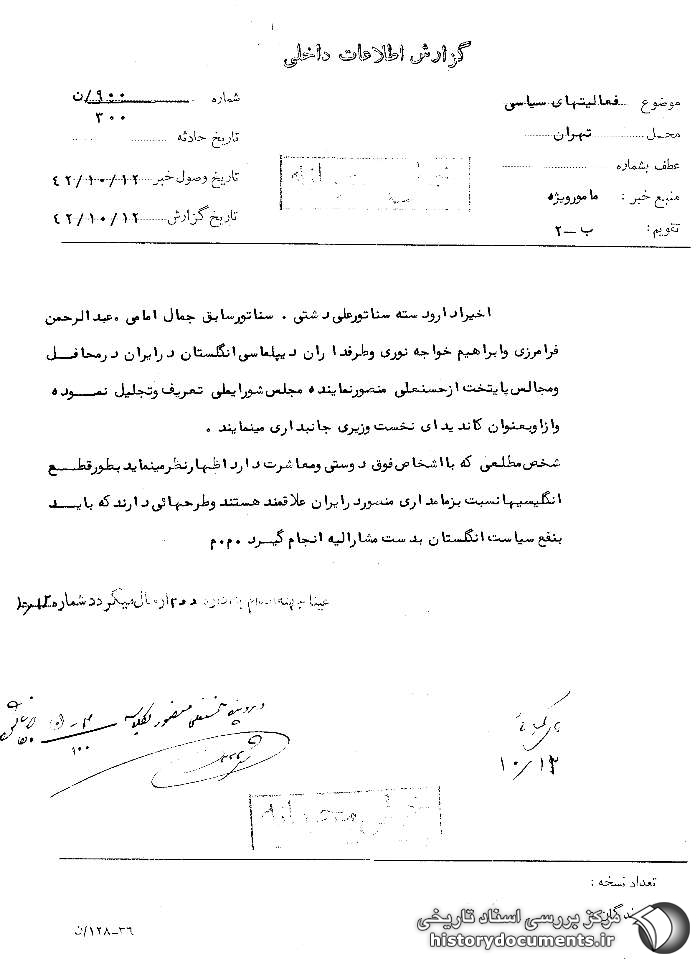 گزارش اطلاعات داخلی
موضوع فعالیتهای سیاسی
شماره ۹۰۰/ن
۳۰۰
محل تهران
تاریخ حادثه
عطف بشماره
تاریخ وصول خبر ۴۲/۱۰/۱۲
منبع خبر : مامورویژه
تاریخ گزارش ۴۲/۱۰/۱۲
تقویم : ب-۲
خیلی محرمانه
اخیرا دارودسته سناتورعلی دشتی . سناتورسابق جمال امامی . عبدالرحمن
فرامرزی وابراهیم خواجه نوری وطرفداران دیپلماسی انگلستان درایران درمحافل
ومجالس پایتخت ازحسنعلی منصورنماینده مجلس شورایملی تعریف وتجلیل نموده
وازاوبعنوان کاندیدای نخست وزیری جانبداری مینمایند .
شخص مطلعی که بااشخاص فوق دوستی ومعاشرت دارد اظهارنظرمینماید بطورقطع
انگلیسیها نسبت بزمامداری منصوردرایران علاقمند هستند وطرحهائی دارند که باید
بنفع سیاست انگلستان بدست مشارالیه انجام گیرد م.م
میگردد شماره
در پرونده حسنعلی منصور
۱۰۰
۱۰/۱۳
خیلی محرمانه
تعداد نسخه :
۳۶-۱۲۸/ن
مرکز بررسی اسناد تاریخی
historydocuments.ir